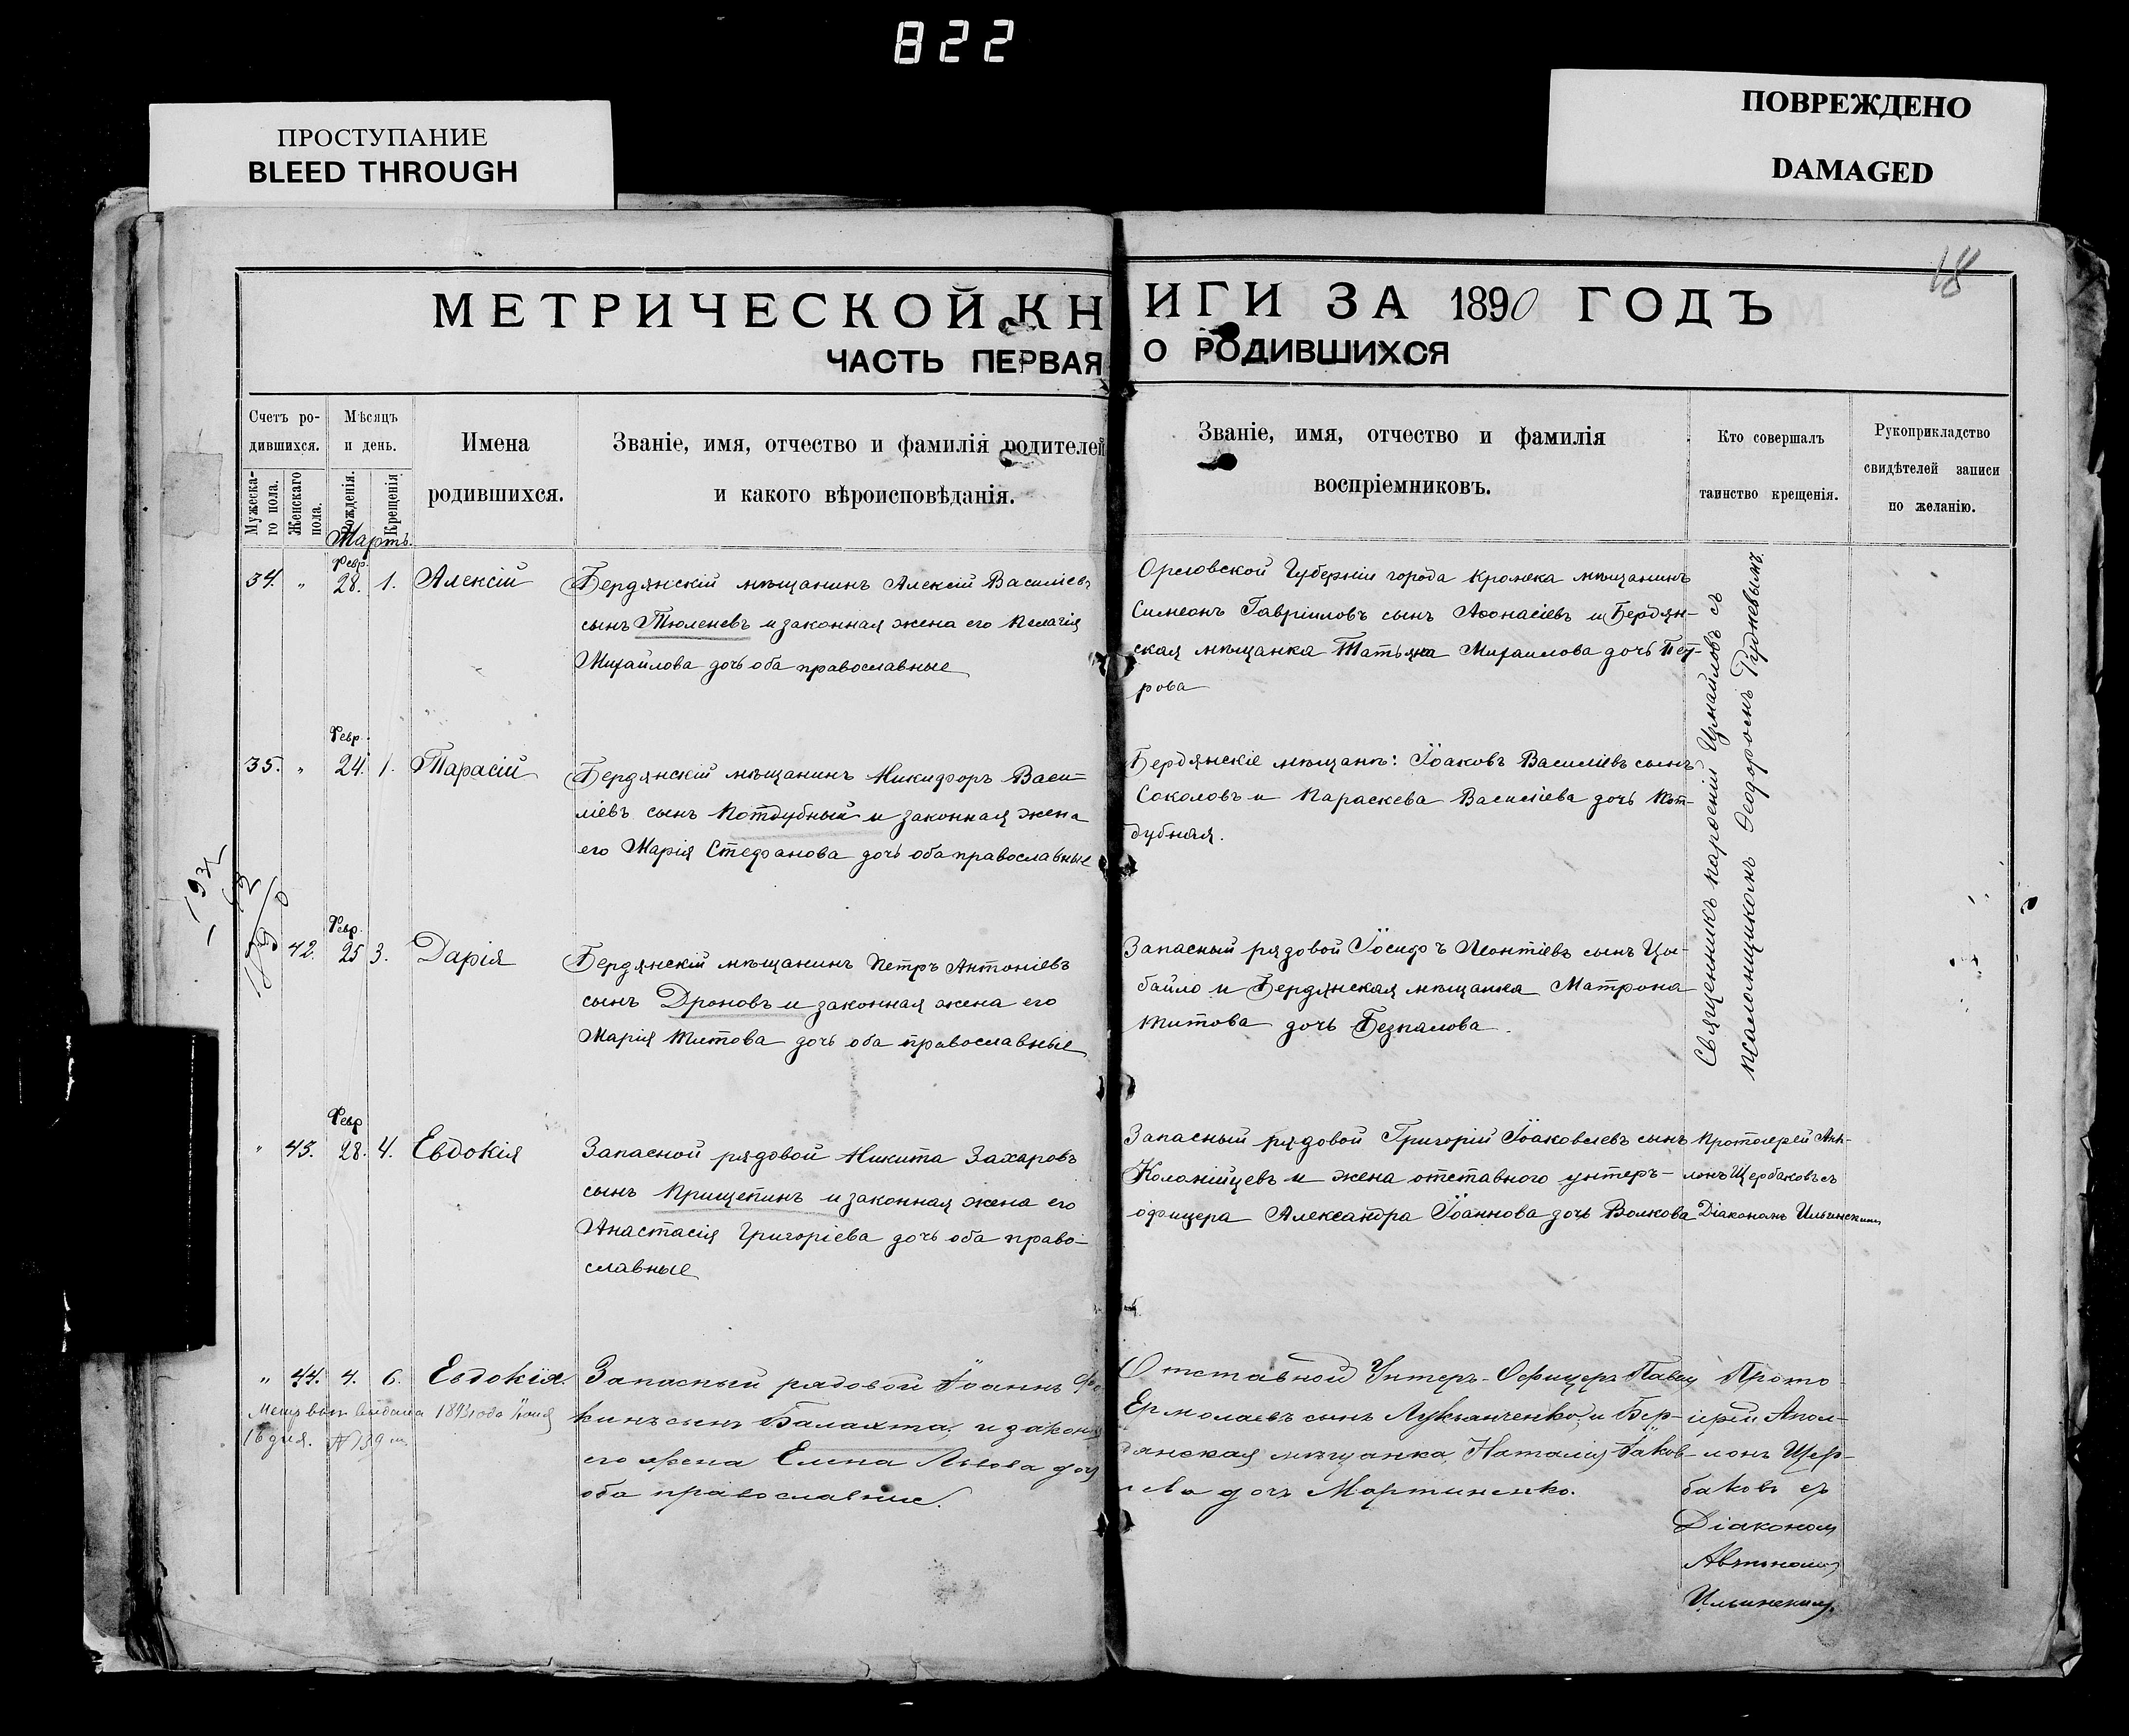 822
ПРОСТУПАНИЕ
BLEED THROUGH
ПОВРЕЖДЕНО
DAMAGED
18
МЕТРИЧЕСКОЙ КНИГИ ЗА 1890 ГОДЪ
ЧАСТЬ ПЕРВАЯ О РОДИВШИХСЯ
Счетъ ро-
дившихся.
Мужеска-
го пола.
Женскаго
пола.
Мѣсяцъ
и день.
Рожденія.
Крещенія
Имена
родившихся.
Званіе, имя, отчество и фамилія родителей
и какого вѣроисповѣданія.
Званіе, имя, отчество и фамилія
воспріемниковъ.
Кто совершалъ
таинство крещенія.
Рукоприкладство
свидѣтелей записи
по желанію.
Мартъ.
Февр.
34. " 28. 1. Алексій
Бердянскій мѣщанинъ Алексій Василіевъ
сынъ Тюленевъ и законная жена его Пелагія
Михайлова дочь оба православные
Орловской Губерніи города мѣщанинъ
Симеонъ Гавріиловъ сынъ Аѳонасіевъ и Бердян-
ская мѣщанка Татьяна Михаилова дочь Пет-
рова
Февр.
35. " 24. 1. Тарасій
Бердянскій мѣщанинъ Никифоръ Васи-
ліевъ сынъ и законная жена
его Марія Стефанова дочь оба православные
Бердянскіе мѣщане: Іоаковъ Василіевъ сынъ
Соколовъ и Параскева Василіева дочь
дубная.
Февр.
42. 25 3. Дарія
Бердянскій мѣщанинъ Петръ Антоніевъ
сынъ Дроновъ и законная жена его
Марія Титова дочь оба православные
Запасный рядовой Іосифъ Леонтіевъ сынъ Цы-
байло и Бердянская мѣщанка Матрона
Титова дочь Безпалова.
Священникъ Михайловъ съ
псаломщикомъ Ѳеодоромъ Рудневымъ.
Февр
" 43. 28. 4. Евдокія
Запасной рядовой Никита Захаровъ
сынъ Прищепинъ и законная жена его
Анастасія Григоріева дочь оба право-
славные
Запасный рядовой Григорій Іоаковлевъ сынъ
Коломійцевъ и жена отставного унтеръ-
офицера Александра Іоаннова дочь Волкова
Протоіерей Апо-
лонъ Щербаковъ съ
Діакономъ Ильинскимъ
" 44. 4. 6. Евдокія.
Запасный рядовой Іоаннъ Фо-
кинъ сынъ Балахта, и закон
его жена Елена Львова доч
оба православные.
Отставной Унтеръ-Офицеръ Павелъ
Ермолаевъ сынъ Лукьянченко, и Бер-
дянская мѣщанка, Наталія Іаков-
лева дочь Мартиненко.
Прото-
іерей Апол-
лонъ Щер-
баковъ съ
Діакономъ
Ильинскимъ.